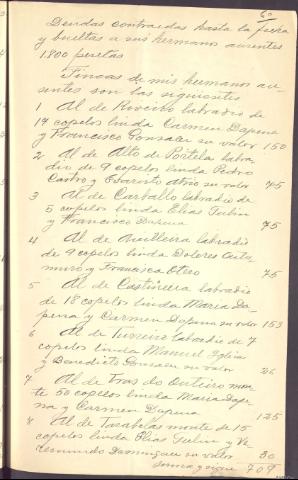 60
Deudas contraidas hasta la fecha
y bueltas a sus hermanos ausentes
1.800 pesetas
Fincas de mis hermanos au-
sentes son las siguientes
1 Al de Riveiro labradio de
14 copelos linda Carmen Dapena
y Francisco Gonsales su valor 150
2 Al de Alto de Portela labra
dio de 9 copelos linda Pedro
Castro y Evaristo Otero su valor 45
3 Al de Carballo labradio de
5 copelos linda Elias
y Francisco Dapena 75
4 Al de labradio
de 9 copelos linda Dolores
y Francisca Otero 75
5 Al de Castiñeira labradio
de 18 copelos linda Maria Da-
pena y Carmen Dapena su valor 153
6 Al de labradio de 7
copelos linda Manuel Iglesia
y Benedicto Gonsales su valor 26
7 Al de Tras do Outeiro mon-
te 50 copelos linda Maria Dape
na y Carmen Dapena 125
8 Al de Tarabelas monte de 15
copelos linda Elias y Ve-
remundo Dominguez su valor 30
suma y sigue 709